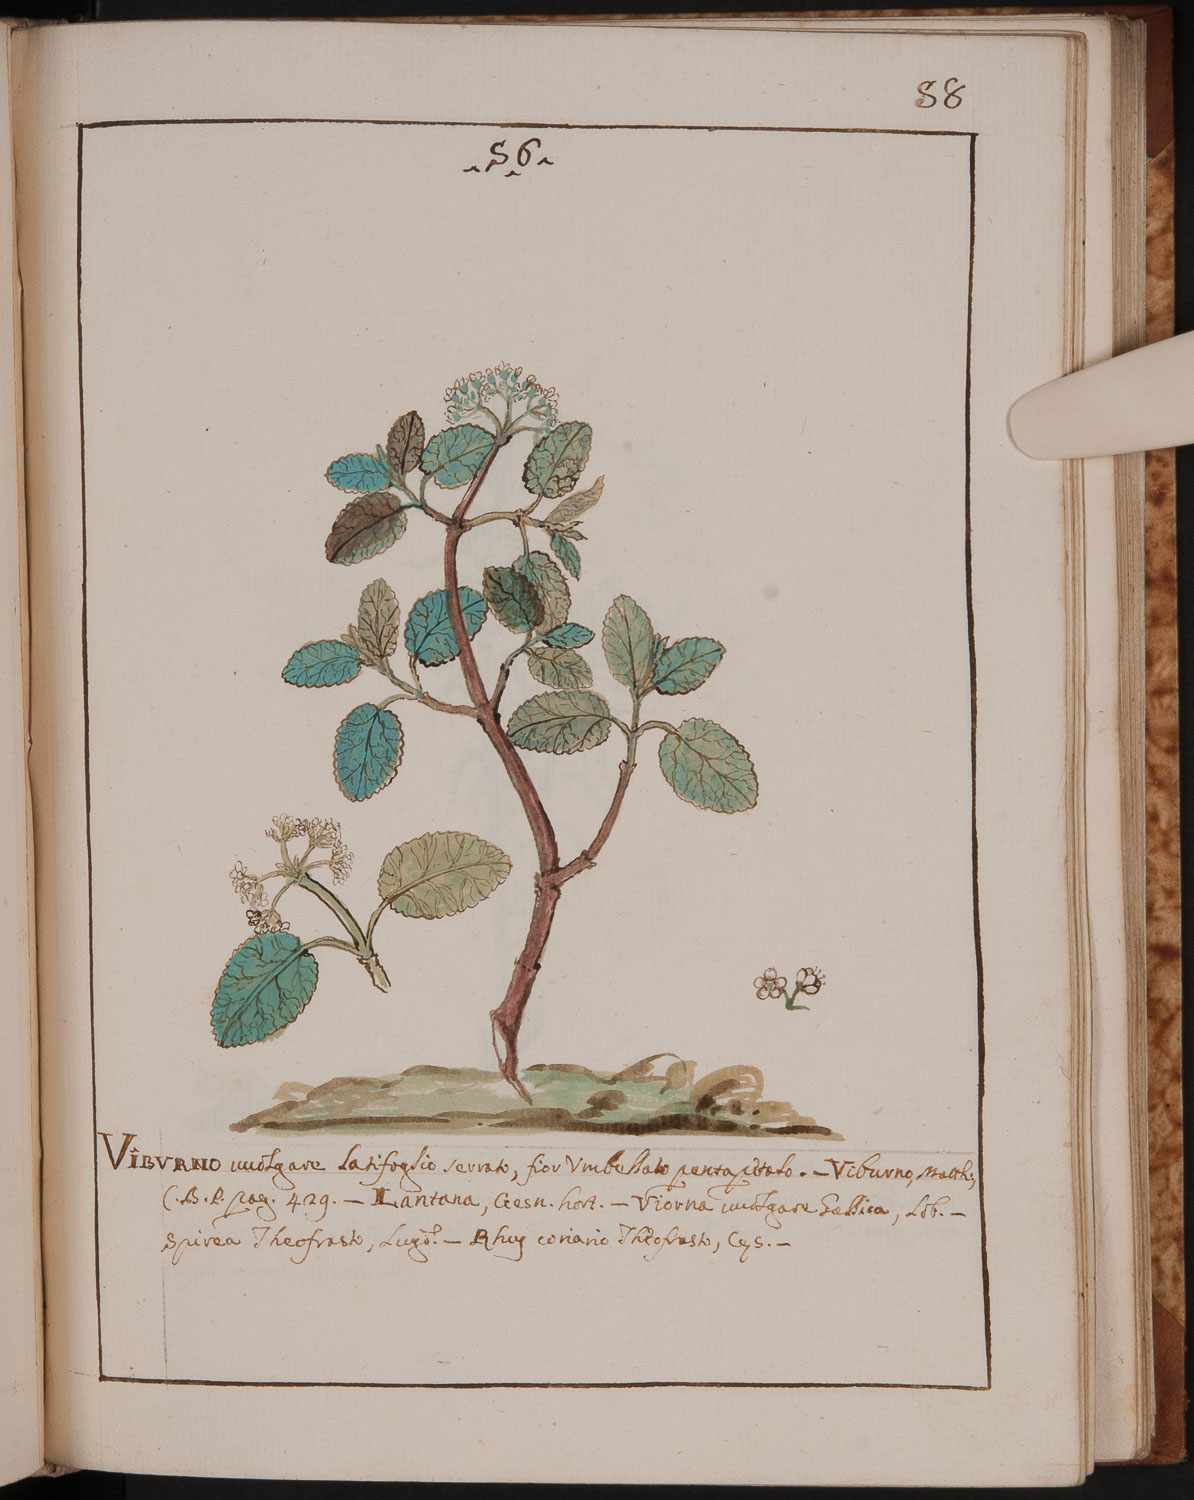 58
56
VIBURNO uuolgare Latifoglio serrato, fior Vmbellato pentapetalo. — Viburno, Matth;
C. B. P. pag. 429. — Lantana, Gesn. hort. — Viorna uuolgare Gallica, Lob. —
Spirea Theofrasto, Lugd. — Rhus coriario Theofrasto, Cęs. —